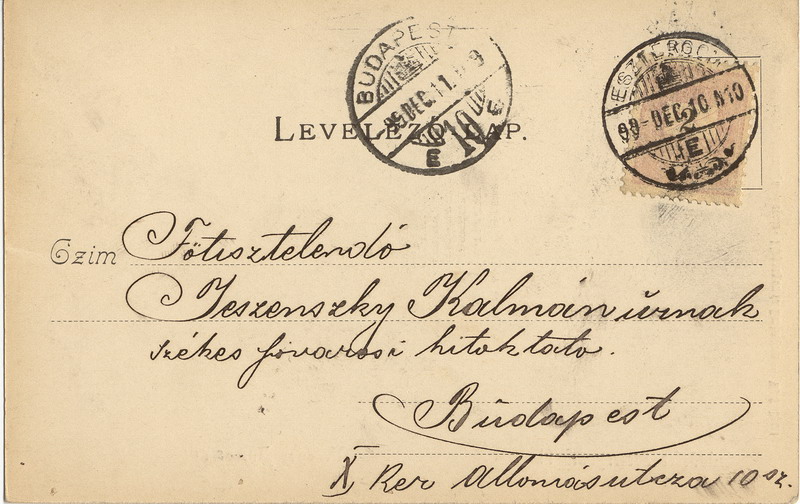 BUDAPEST
DEC. 11.
ESZTERGOM
99-DEC.10 N10
2
E
LEVELEZŐ-LAP.
Czim Főtisztelendő
Jeszenszky Kalmán úrnak
székes fővárosi hitoktató.
Budapest
X Ker Allomásutcza 10 sz.